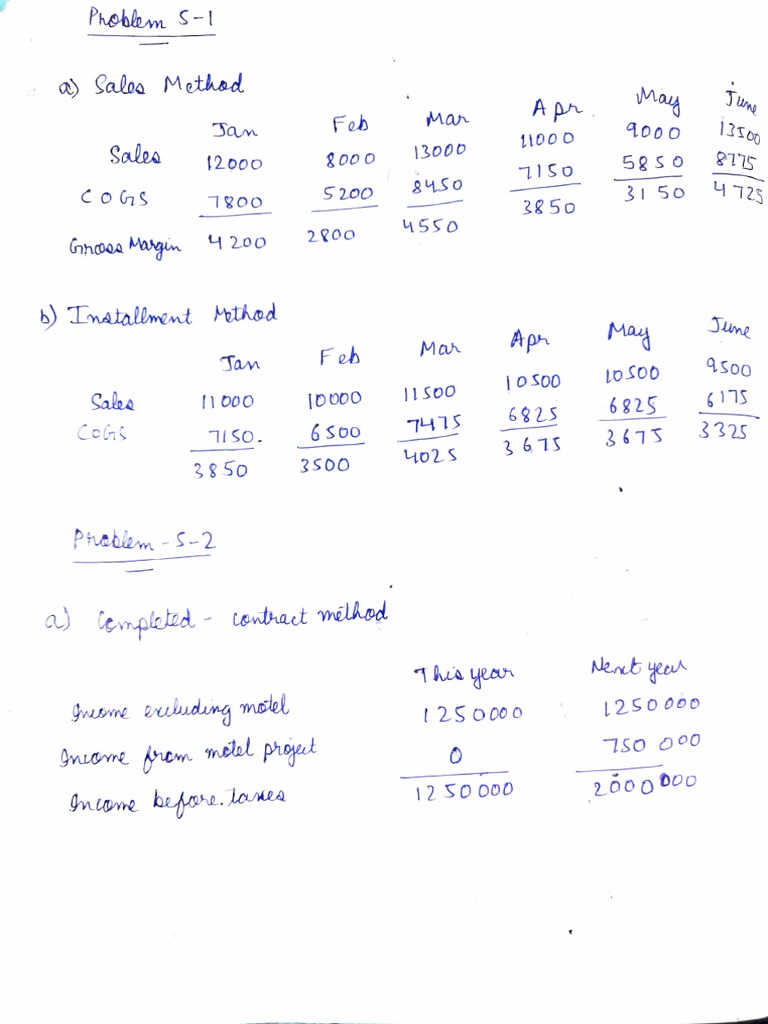 Problem 5-1
a) Sales Method
Jan Feb Mar Apr May June
Sales 12000 8000 13000 11000 9000 13500
COGS 7800 5200 8450 7150 5850 8775
Gross Margin 4200 2800 4550 3850 3150 4725
b) Installment Method
Jan Feb Mar Apr May June
Sales 11000 10000 11500 10500 10500 9500
COGS 7150. 6500 7475 6825 6825 6175
3850 3500 4025 3675 3675 3325
Problem - 5-2
a) Completed - contract method
This year Next year
Income excluding motel 1250000 1250000
Income from motel project 0 750 000
Income before.taxes 1250000 2000000